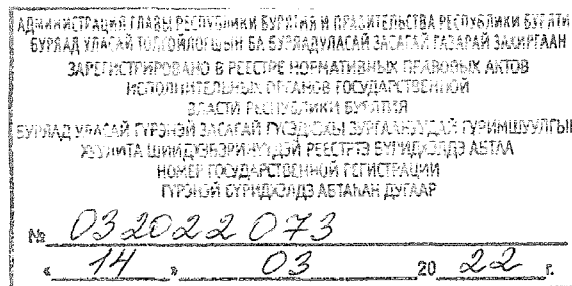 АДМИНИСТРАЦИЯ ГЛАВЫ РЕСПУБЛИКИ БУРЯТИЯ И ПРАВИТЕЛЬСТВА РЕСПУБЛИКИ БУРЯТИЯ
БУРЯАД УЛАСАЙ ТОЛГОЙЛОГШЫН БА БУРЯАД УЛАСАЙ ЗАСАГАЙ ГАЗАРАЙ ЗАХИРГААН
ЗАРЕГИСТРИРОВАНО В РЕЕСТРЕ НОРМАТИВНЫХ ПРАВОВЫХ АКТОВ
ИСПОЛНИТЕЛЬНЫХ ОРГАНОВ ГОСУДАРСТВЕННОЙ
ВЛАСТИ РЕСПУБЛИКИ БУРЯТИЯ
БУРЯАД УЛАСАЙ ГҮРЭНЭЙ ЗАСАГАЙ
РЕЕСТРТЭ БҮРИДХЭЛДЭ АБТАА
НОМЕР ГОСУДАРСТВЕННОЙ РЕГИСТРАЦИИ
ГҮРЭНЭЙ БҮРИДХЭЛДЭ АБТАҺАН ДУГААР
№ 032022073
« 14 » 03 20 22 г.